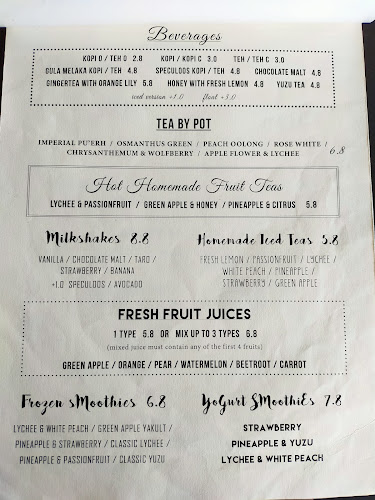 Beverages
KOPI O / TEH O 2.8 KOPI / KOPI C 3.0 TEH / TEH C 3.0
GULA MELAKA KOPI / TEH 4.8 SPECULOOS KOPI / TEH 4.8 CHOCOLATE MALT 4.8
GINGERTEA WITH ORANGE LILY 5.8 HONEY WITH FRESH LEMON 4.8 YUZU TEA 4.8
iced version +1.0 float +3.0
TEA BY POT
IMPERIAL PU'ERH / OSMANTHUS GREEN / PEACH OOLONG / ROSE WHITE /
CHRYSANTHEMUM & WOLFBERRY / APPLE FLOWER & LYCHEE 6.8
Hot Homemade Fruit Teas
LYCHEE & PASSIONFRUIT / GREEN APPLE & HONEY / PINEAPPLE & CITRUS 5.8
Milkshakes 8.8
VANILLA / CHOCOLATE MALT / TARO /
STRAWBERRY / BANANA
+1.0 SPECULOOS / AVOCADO
Homemade Iced Teas 5.8
FRESH LEMON / PASSIONFRUIT / LYCHEE /
WHITE PEACH / PINEAPPLE /
STRAWBERRY / GREEN APPLE
FRESH FRUIT JUICES
1 TYPE 5.8 OR MIX UP TO 3 TYPES 6.8
(mixed juice must contain any of the first 4 fruits)
GREEN APPLE / ORANGE / PEAR / WATERMELON / BEETROOT / CARROT
Frozen sMoothies 6.8
LYCHEE & WHITE PEACH / GREEN APPLE YAKULT /
PINEAPPLE & STRAWBERRY / CLASSIC LYCHEE /
PINEAPPLE & PASSIONFRUIT / CLASSIC YUZU
YoGurt SMoothiEs 7.8
STRAWBERRY
PINEAPPLE & YUZU
LYCHEE & WHITE PEACH